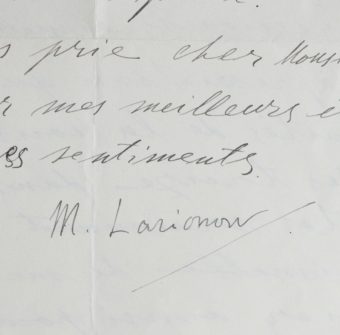 s prie cher Monsi
r mes meilleurs e
es sentiments.
M. Larionow